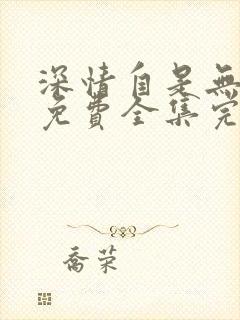 深情自是無
免費全集完
喬荣